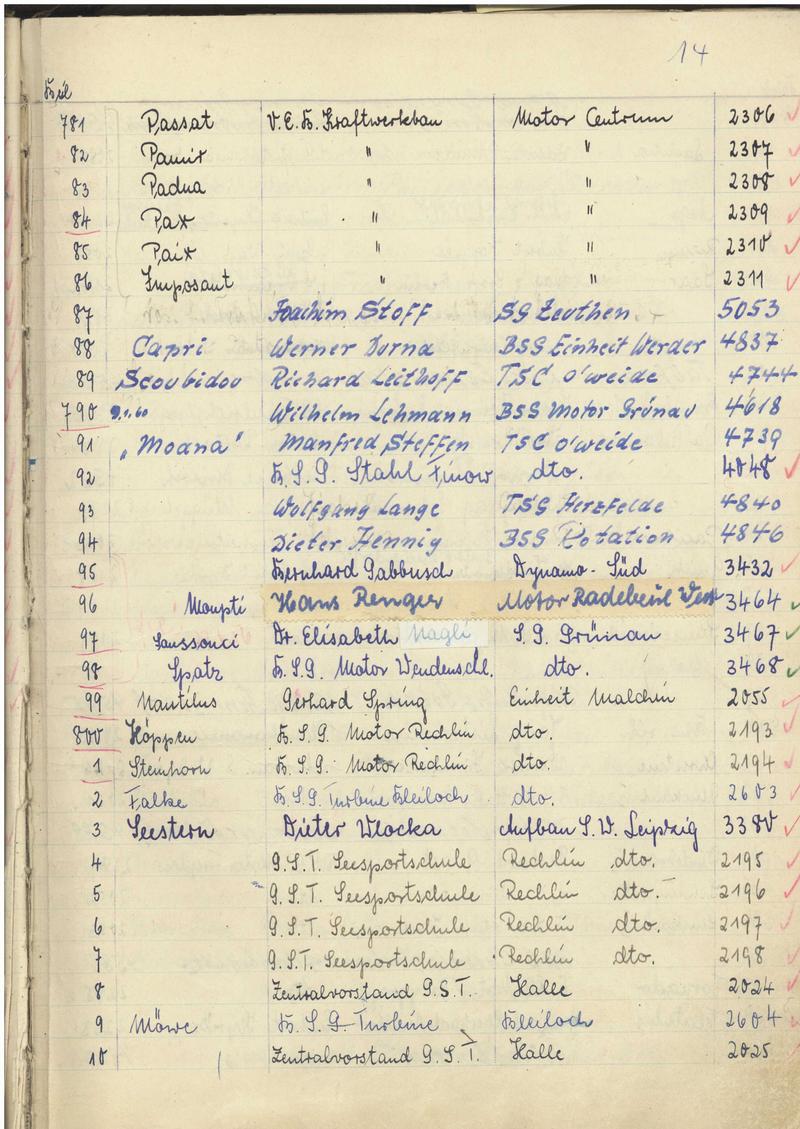 14
781 Passat V.E.B. Kraftwerkbau Motor Centrum 2306
82 Pamir " " 2307
83 Padua " " 2308
84 Pax " " 2309
85 Paix " " 2310
86 Imposant " " 2311
87 Joachim Stoff SG Zeuthen 5053
88 Capri Werner Durna BSG Einheit Werder 4837
89 Scoubidou Richard Leithoff TSC O'weide 4744
790 9.1.60 Wilhelm Lehmann BSG Motor Grünau 4618
91 „Moana" Manfred Steffen TSC O'weide 4739
92 B.S.G. Stahl Finow dto. 4048
93 Wolfgang Lange TSG Herzfelde 4840
94 Dieter Hennig BSG Rotation 4846
95 Bernhard Gabbusch Dynamo-Süd 3432
96 Moupti Hans Renger Motor Radebeul West 3464
97 Sanssouci Dr. Elisabeth Nagli S.G. Grünau 3467
98 Spatz B.S.G. Motor Wendenschl. dto. 3468
99 Nautilus Gerhard Spring Einheit Malchin 2055
800 Höppen B.S.G. Motor Rechlin dto. 2193
1 Steinhorn B.S.G. Motor Rechlin dto. 2194
2 Falke B.S.G Turbine Bleiloch dto. 2603
3 Seestern Dieter Wlocka Aufbau S.W. Leipzig 3380
4 G.S.T. Seesportschule Rechlin dto. 2195
5 G.S.T. Seesportschule Rechlin dto. 2196
6 G.S.T. Seesportschule Rechlin dto. 2197
7 G.S.T. Seesportschule Rechlin dto. 2198
8 Zentralvorstand G.S.T. Halle 2024
9 Möwe B.S.G. Turbine Bleiloch 2604
10 Zentralvorstand G.S.T. Halle 2025